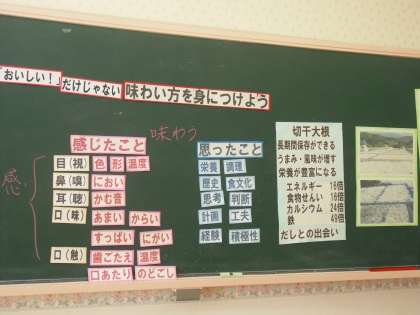 「おいしい！」だけじゃない 味わい方を身につけよう
味わう
感じたこと
感
目(視) 色 形 温度
鼻(嗅) におい
耳(聴) かむ音
口(味) あまい からい
すっぱい にがい
口(触) 歯ごたえ 温度
口あたり のどごし
思ったこと
栄養 調理
歴史 食文化
思考 判断
計画 工夫
経験 積極性
切干大根
長期間保存ができる
うまみ・風味が増す
栄養が豊富になる
エネルギー 16倍
食物せんい 16倍
カルシウム 24倍
鉄 49倍
だしとの出会い